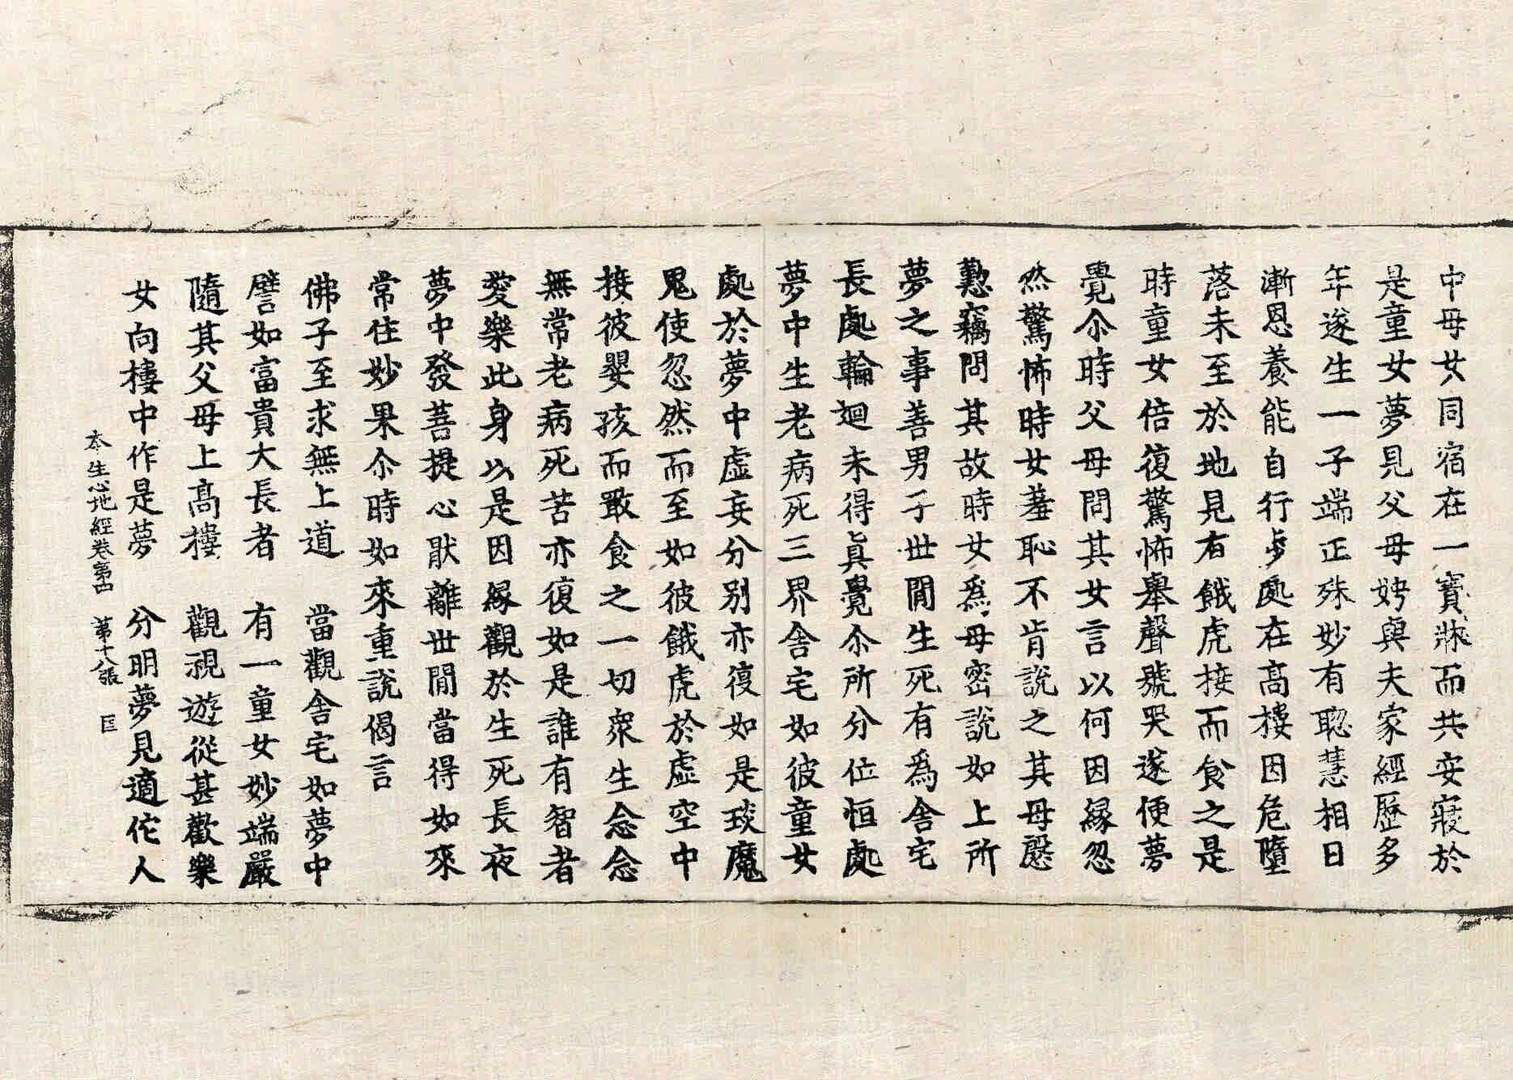 中母女同宿在一寶牀而共安寢於
是童女夢見父母娉與夫家經歷多
年遂生一子端正殊妙有聡慧相日
漸恩養能自行步處在高樓因危墮
落未至於地見有餓虎接而食之是
時童女倍復驚怖舉聲號哭遂便夢
覺尒時父母問其女言以何因緣忽
然驚怖時女羞恥不肯說之其母慇
懃竊問其故時女爲母密說如上所
夢之事善男子世閒生死有爲舍宅
長處輪迴未得眞覺尒所分位恒處
夢中生老病死三界舍宅如彼童女
處於夢中虛妄分別亦復如是琰魔
鬼使忽然而至如彼餓虎於虛空中
接彼嬰孩而噉食之一切衆生念念
無常老病死苦亦復如是誰有智者
愛樂此身以是因緣觀於生死長夜
夢中發菩提心猒離世閒當得如來
常住妙果尒時如來重說偈言
佛子至求無上道 當觀舍宅如夢中
譬如富貴大長者 有一童女妙端嚴
隨其父母上高樓 觀視遊從甚歡樂
女向樓中作是夢 分明夢見適佗人
本生心地經卷第四 第十八張 匡